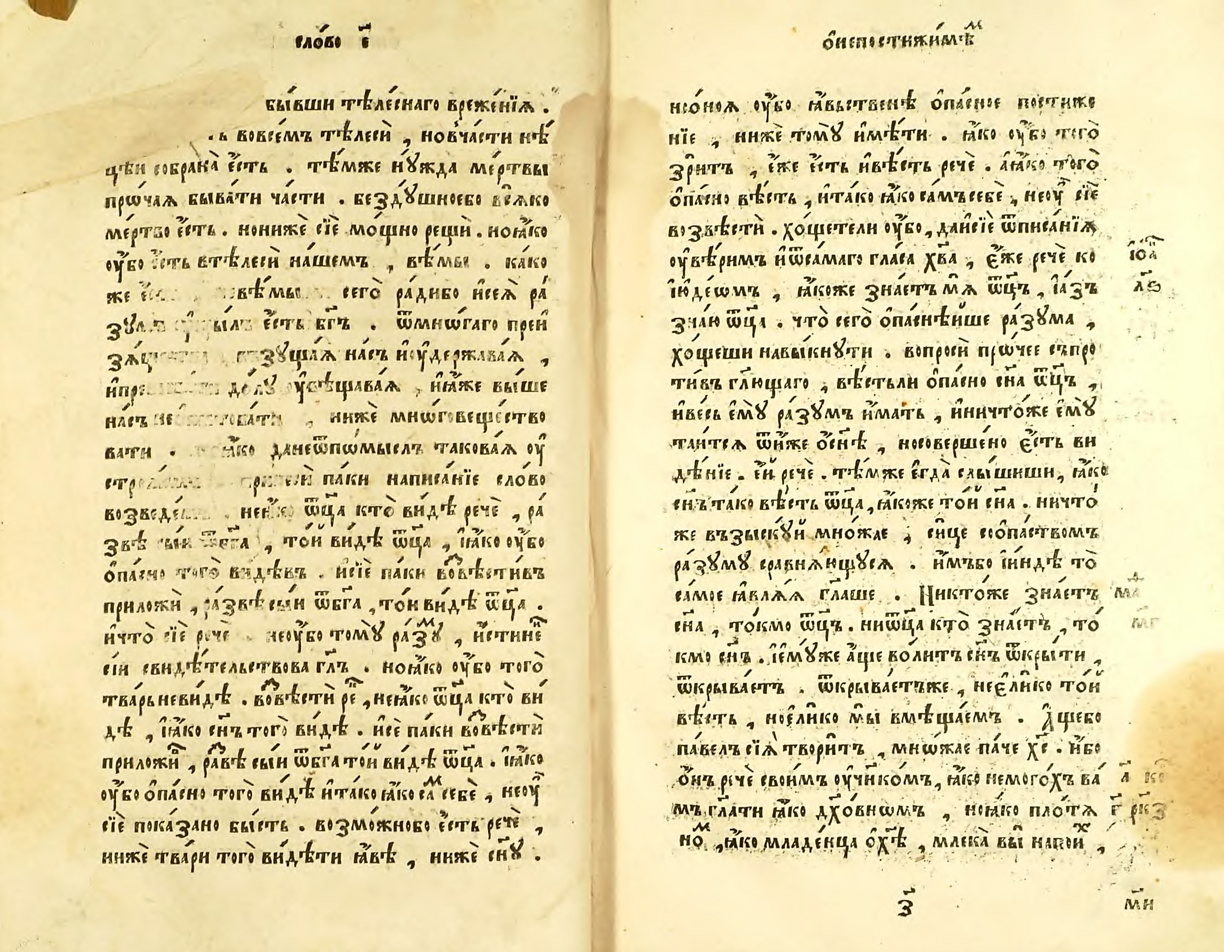 сло́во є҃
бы́вши тѣле́снаго вреже́нїѧ .
вовсе́мъ тѣлесѝ , но́ вча́сти нѣ́
цѣи собрана̀ є҆́сть . тѣ́мже нꙋ́жда ме́ртвы
прѡ́чаѧ быва́ти ча́сти . бездꙋ́шноебо всѧ́ко
ме́ртво є҆́сть . нонижѐ сїѐ мо́щно рещѝ . ноꙗ҆́ко
ᲂу҆́бо є҆́сть втѣлесѝ на́шемъ , вѣ́мы . ка́ко
же вѣ́мы сего̀ ра́дибо и҆сеѧ̀ ра́
є҆́сть бг҃ъ . ѿмно́гаго преи
на́съ и҆ᲂу҆де́ржаваѧ ,
до́лꙋ ᲂу҆вѣщава́ѧ , и҆ꙗ҆́же вы́ше
на́съ нижѐ мно́говещество
вати . ꙗ҆́ко да́неѿпо́мыслъ такова́ѧ ᲂу҆
па́ки написа́нїе сло́во
ѻ҆ц҃а̀ кто̀ ви́дѣ речѐ , ра́
звѣ сы́и , то́и ви́дѣ ѻ҆ц҃а̀ , і҆ꙗ҆́ко ᲂу҆́бо
ѻ҆па́сно того̀ ви́дѣвъ . и҆сїѐ па́ки вовѣсти́въ
приложѝ , ра́звѣ сы́и ѿбг҃а , то́и ви́дѣ ѻ҆ц҃а̀ .
и҆что̀ сїѐ речѐ неᲂу҆́бо томꙋ̀ ра́зꙋⷨ , и҆́стинеⷩ
сїи свидѣ́тельствова гл҃ъ . ноꙗ҆́ко ᲂу҆́бо того̀
тва́рьневи́дѣ . вовѣстѝ реⷱ , неꙗ҆́ко ѻ҆ц҃а̀ кто̀ ви́
дѣ , і҆ꙗ҆́ко сн҃ъ того̀ ви́дѣ . и҆сѐ па́ки вовѣстѝ
приложѝ , ра́вѣ сы́и ѿбг҃а то́и ви́дѣ ѻ҆ц҃а̀ . і҆ꙗ҆́ко
ᲂу҆́бо ѻ҆па́сно того̀ ви́дѣ и҆та́ко ꙗ҆́ко саⷨ себѐ , неᲂу҆
сїѐ пока́зано бы́сть . возмо́жнобо є҆́сть речѐ ,
нижѐ тва́ри того̀ ви́дѣти ꙗ҆́вѣ , нижѐ сн҃ꙋ .
ѻ҆непостижи́мѣⷨ
но́ноѧ ᲂу҆́бо ꙗ҆́вьственѣ ѻ҆па́сное постиже
нїе , нижѐ томꙋ̀ и҆мѣ́ти . ꙗ҆́ко ᲂу҆́бо того̀
зри́тъ , є҆́же є҆́сть и҆вѣ́сть речѐ . а҆ꙗ҆́ко того̀
ѻ҆па́сно вѣ́сть , и҆та́ко ꙗ҆́ко са́мъсебѐ , неᲂу҆ сїѐ
возвѣстѝ . хо́щетели ᲂу҆́бо , даи҆сїѐ ѿписа́нїѧ
ᲂу҆вѣ́римъ и҆ѿса́маго гла́са хв҃а , є҆́же речѐ ко
і҆ꙋде́ѡмъ , ꙗ҆́коже зна́етъ мѧ̀ ѻ҆ц҃ъ , і҆а҆́зъ
зна́ю ѻ҆ц҃а̀ . что̀ сего̀ ѻ҆паснѣ́ише ра́зꙋма ,
хо́щеши навы́кнꙋти . вопросѝ прѡ́чее съпро
ти́въ гл҃ющаго , вѣ́стьли ѻ҆па́сно сн҃а ѻ҆ц҃ъ ,
и҆ве́сь є҆мꙋ̀ ра́зꙋмъ и҆́мать , и҆ничто́же є҆мꙋ̀
таи́тсѧ ѿни́же ѻ҆сн҃ѣ , носоверше́но є҆́сть ви
дѣ́нїе . є҆́и речѐ . тѣ́мже є҆гда̀ слы́шиши, ꙗ҆́ко
сн҃ъ та́ко вѣ́сть ѻ҆ц҃а̀ , ꙗ҆́коже то́и сн҃а . ничто́
же възыскꙋ́и мно́жае , си́це сѻ҆па́ствомъ
ра́зꙋмꙋ сравнѧ́ющꙋсѧ . и҆́мъбо і҆и҆ндѣ̀ то̀
са́мое ꙗ҆влѧ́ѧ гл҃аше . Никто́же зна́етъ
сн҃а , то́кмо ѻ҆ц҃ъ . ниѻ҆ц҃а кто̀ зна́етъ , то́
кмо сн҃ъ . і҆є҆мꙋ́же а҆́ще во́литъ сн҃ъ ѿкры́ти ,
ѿкрыва́етъ . ѿкрыва́етъже , неє҆ли́ко то́и
вѣ́сть , ноє҆ли́ко мы̀ вмѣща́емъ . А҆́щебо
па́велъ сїѧ̀ твори́тъ , мно́жае па́че хс҃ . и҆́бо
ѻ҆́нъ речѐ свои́мъ ᲂу҆чн҃ко́мъ, ꙗ҆́ко немого́хъ ва́
мъ гл҃ати ꙗ҆́ко дх҃о́внымъ , ноꙗ҆́ко пло́тѧ
ноⷨ , ꙗ҆́ко младе́нца ѻ҆хѣ , млека̀ вы̀ напоиⷯ ,
з҃